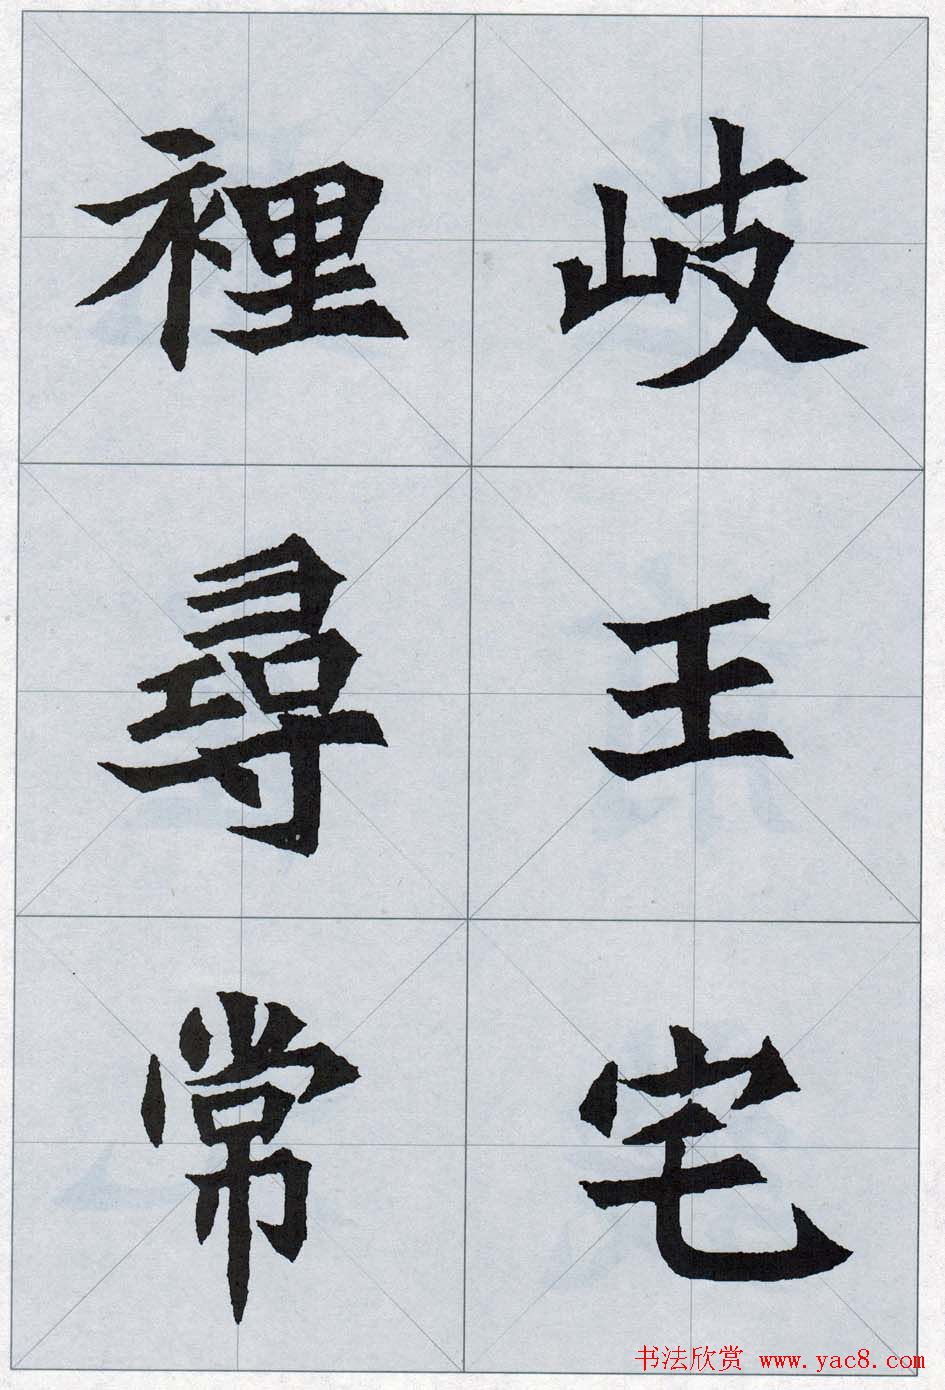 岐王宅
裡尋常
书法欣赏 www.yac8.com